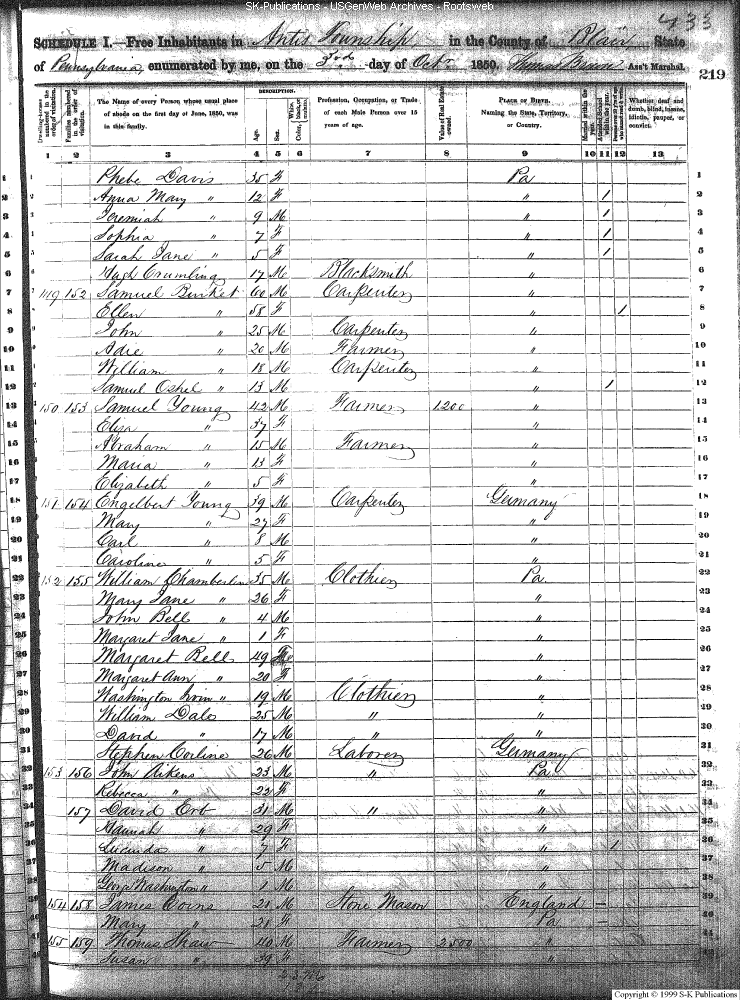 SK-Publications - USGenWeb Archives - Rootsweb
433
SCHEDULE I.—Free Inhabitants in Antis Township in the County of Blair State
of Pennsylvania enumerated by me, on the 3rd day of Octr 1850. Thomas Ass't Marshal. 219
Dwelling-houses numbered in the order of visitation. Families numbered in the order of visitation. The Name of every Person whose usual place of abode on the first day of June, 1850, was in this family. DESCRIPTION. Age. Sex. White, black, or mulatto. Color, Profession, Occupation, or Trade of each Male Person over 15 years of age. Value of Real Estate owned. PLACE OF BIRTH. Naming the State, Territory, or Country. Married within the year. Attended School within the year. Whether deaf and dumb, blind, insane, idiotic, pauper, or convict.
1 2 3 4 5 6 7 8 9 10 11 12 13
1 Phebe Davis 35 F Pa 1
2 Anna Mary " 12 F " / 2
3 Jeremiah " 9 M " / 3
4 Sophia " 7 F " / 4
5 Sarah Jane " 5 F " / 5
6 Hugh Crumling 17 M Blacksmith " 6
7 149 152 Samuel Burket 60 M Carpenter " 7
8 Ellen " 58 F " / 8
9 John " 25 M Carpenter " 9
10 Adie " 20 M Farmer " 10
11 William " 18 M Carpenter " 11
12 Samuel " 13 M " / 12
13 150 153 Samuel Young 42 M Farmer 1200 " 13
14 Eliza " 37 F " 14
15 Abraham " 15 M Farmer " 15
16 Maria " 13 F " 16
17 Elizabeth " 5 F " 17
18 151 154 Engelbert Young 39 M Carpenter Germany 18
19 Mary " 27 F " 19
20 Carl " 8 M " 20
21 Caroline " 5 F " 21
22 152 155 William Chamberlin 35 M Clothier Pa 22
23 Mary Jane " 26 F " 23
24 John Bell " 4 M " 24
25 Margaret Jane " 1 F " 25
26 Margaret Bell 49 F " 26
27 Margaret Ann " 20 F " 27
28 Washington Irvin " 19 M Clothier " 28
29 William Dale 25 M " " 29
30 David " 17 M " " 30
31 Stephen Corline 26 M Laborer Germany 31
32 153 156 John Aikens 23 M " Pa 32
33 Rebecca " 22 F " 33
34 157 David Ert 31 M " " 34
35 Hannah " 29 F " 35
36 Lucinda " 7 F " / 36
37 Madison " 5 M " 37
38 George Washington " 1 M " 38
39 154 158 James Coins 21 M Stone Mason England 39
40 Mary " 21 F Pa 40
41 155 159 Thomas Shaw 40 M Farmer 2500 " 41
42 Susan " 39 F " 42
Copyright © 1999 S-K Publications